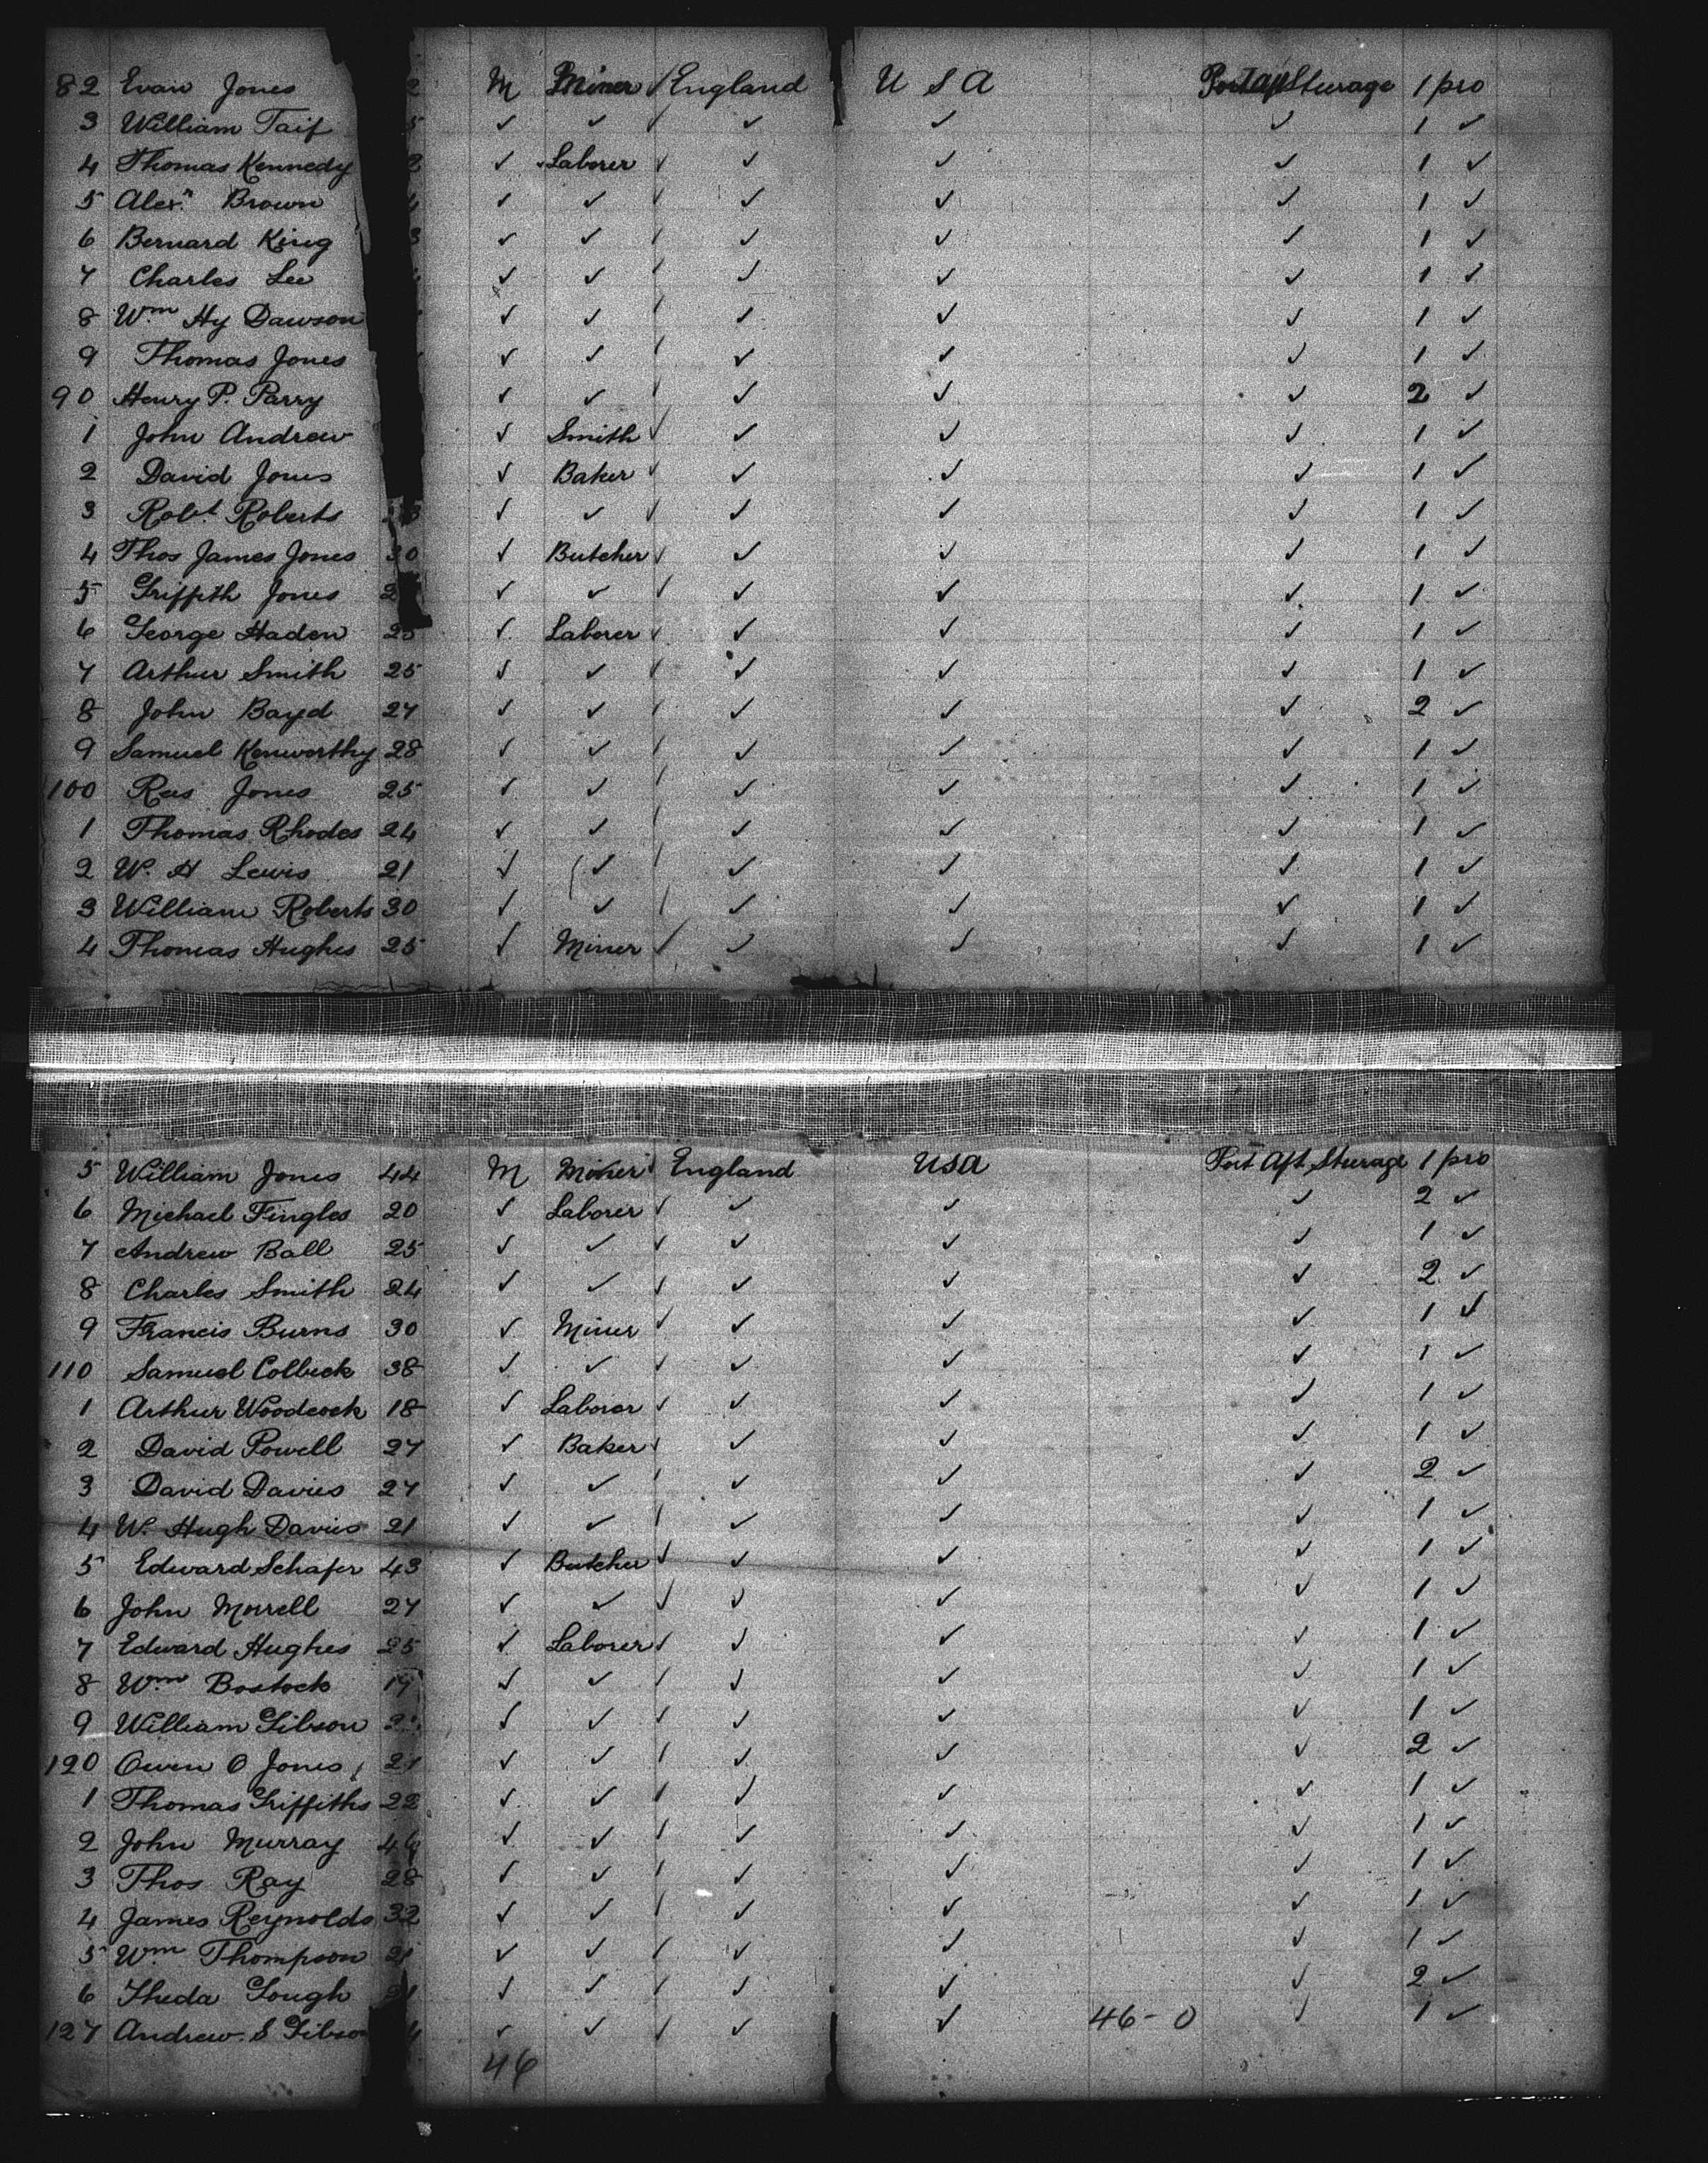 82 Evan Jones 2 M Miner ✓ England U S A Port aft Sturage 1 pro
3 William Taif 5 ✓ ✓ ✓ ✓ ✓ ✓ 1 ✓
4 Thomas Kennedy 2 ✓ Laborer ✓ ✓ ✓ ✓ 1 ✓
5 Alexr Brown ✓ ✓ ✓ ✓ ✓ ✓ 1 ✓
6 Bernard King 3 ✓ ✓ ✓ ✓ ✓ ✓ 1 ✓
7 Charles Lee ✓ ✓ ✓ ✓ ✓ ✓ 1 ✓
8 Wm Hy Dawson ✓ ✓ ✓ ✓ ✓ ✓ 1 ✓
9 Thomas Jones ✓ ✓ ✓ ✓ ✓ ✓ 1 ✓
90 Henry P. Parry ✓ ✓ ✓ ✓ ✓ ✓ 2 ✓
1 John Andrew ✓ Smith ✓ ✓ ✓ ✓ 1 ✓
2 David Jones ✓ Baker ✓ ✓ ✓ ✓ 1 ✓
3 Robt. Roberts ✓ ✓ ✓ ✓ ✓ ✓ 1 ✓
4 Thos James Jones 30 ✓ Butcher ✓ ✓ ✓ ✓ 1 ✓
5 Griffith Jones 2 ✓ ✓ ✓ ✓ ✓ ✓ 1 ✓
6 George Haden 25 ✓ Laborer ✓ ✓ ✓ ✓ 1 ✓
7 Arthur Smith 25 ✓ ✓ ✓ ✓ ✓ ✓ 1 ✓
8 John Bayd 27 ✓ ✓ ✓ ✓ ✓ ✓ 2 ✓
9 Samuel Kenworthy 28 ✓ ✓ ✓ ✓ ✓ ✓ 1 ✓
100 Rees Jones 25 ✓ ✓ ✓ ✓ ✓ ✓ 1 ✓
1 Thomas Rhodes 24 ✓ ✓ ✓ ✓ ✓ ✓ 1 ✓
2 W. H Lewis 21 ✓ ✓ ✓ ✓ ✓ ✓ 1 ✓
3 William Roberts 30 ✓ ✓ ✓ ✓ ✓ ✓ 1 ✓
4 Thomas Hughes 25 ✓ Miner ✓ ✓ ✓ ✓ 1 ✓
5 William Jones 44 M Miner ✓ England USA Port Aft Sturage 1 pro
6 Michael Fingles 20 ✓ Laborer ✓ ✓ ✓ ✓ 2 ✓
7 Andrew Ball 25 ✓ ✓ ✓ ✓ ✓ ✓ 1 ✓
8 Charles Smith 24 ✓ ✓ ✓ ✓ ✓ ✓ 2 ✓
9 Francis Burns 30 ✓ Miner ✓ ✓ ✓ ✓ 1 ✓
110 Samuel Colbeck 38 ✓ ✓ ✓ ✓ ✓ ✓ 1 ✓
1 Arthur Woodcock 18 ✓ Laborer ✓ ✓ ✓ ✓ 1 ✓
2 David Powell 27 ✓ Baker ✓ ✓ ✓ ✓ 1 ✓
3 David Davies 27 ✓ ✓ ✓ ✓ ✓ ✓ 2 ✓
4 W. Hugh Davies 21 ✓ ✓ ✓ ✓ ✓ ✓ 1 ✓
5 Edward Schafer 43 ✓ Butcher ✓ ✓ ✓ ✓ 1 ✓
6 John Morrell 27 ✓ ✓ ✓ ✓ ✓ ✓ 1 ✓
7 Edward Hughes 25 ✓ Laborer ✓ ✓ ✓ ✓ 1 ✓
8 Wm Bostock 19 ✓ ✓ ✓ ✓ ✓ ✓ 1 ✓
9 William Gibson 2 ✓ ✓ ✓ ✓ ✓ ✓ 1 ✓
120 Owen O Jones 21 ✓ ✓ ✓ ✓ ✓ ✓ 2 ✓
1 Thomas Griffiths 22 ✓ ✓ ✓ ✓ ✓ ✓ 1 ✓
2 John Murray 46 ✓ ✓ ✓ ✓ ✓ ✓ 1 ✓
3 Thos Ray 28 ✓ ✓ ✓ ✓ ✓ ✓ 1 ✓
4 James Reynolds 32 ✓ ✓ ✓ ✓ ✓ ✓ 1 ✓
5 Wm Thompson 21 ✓ ✓ ✓ ✓ ✓ ✓ 1 ✓
6 Theda Gough 21 ✓ ✓ ✓ ✓ ✓ ✓ 2 ✓
127 Andrew S Gibson 4 ✓ ✓ ✓ ✓ ✓ 46-0 ✓ 1 ✓
46